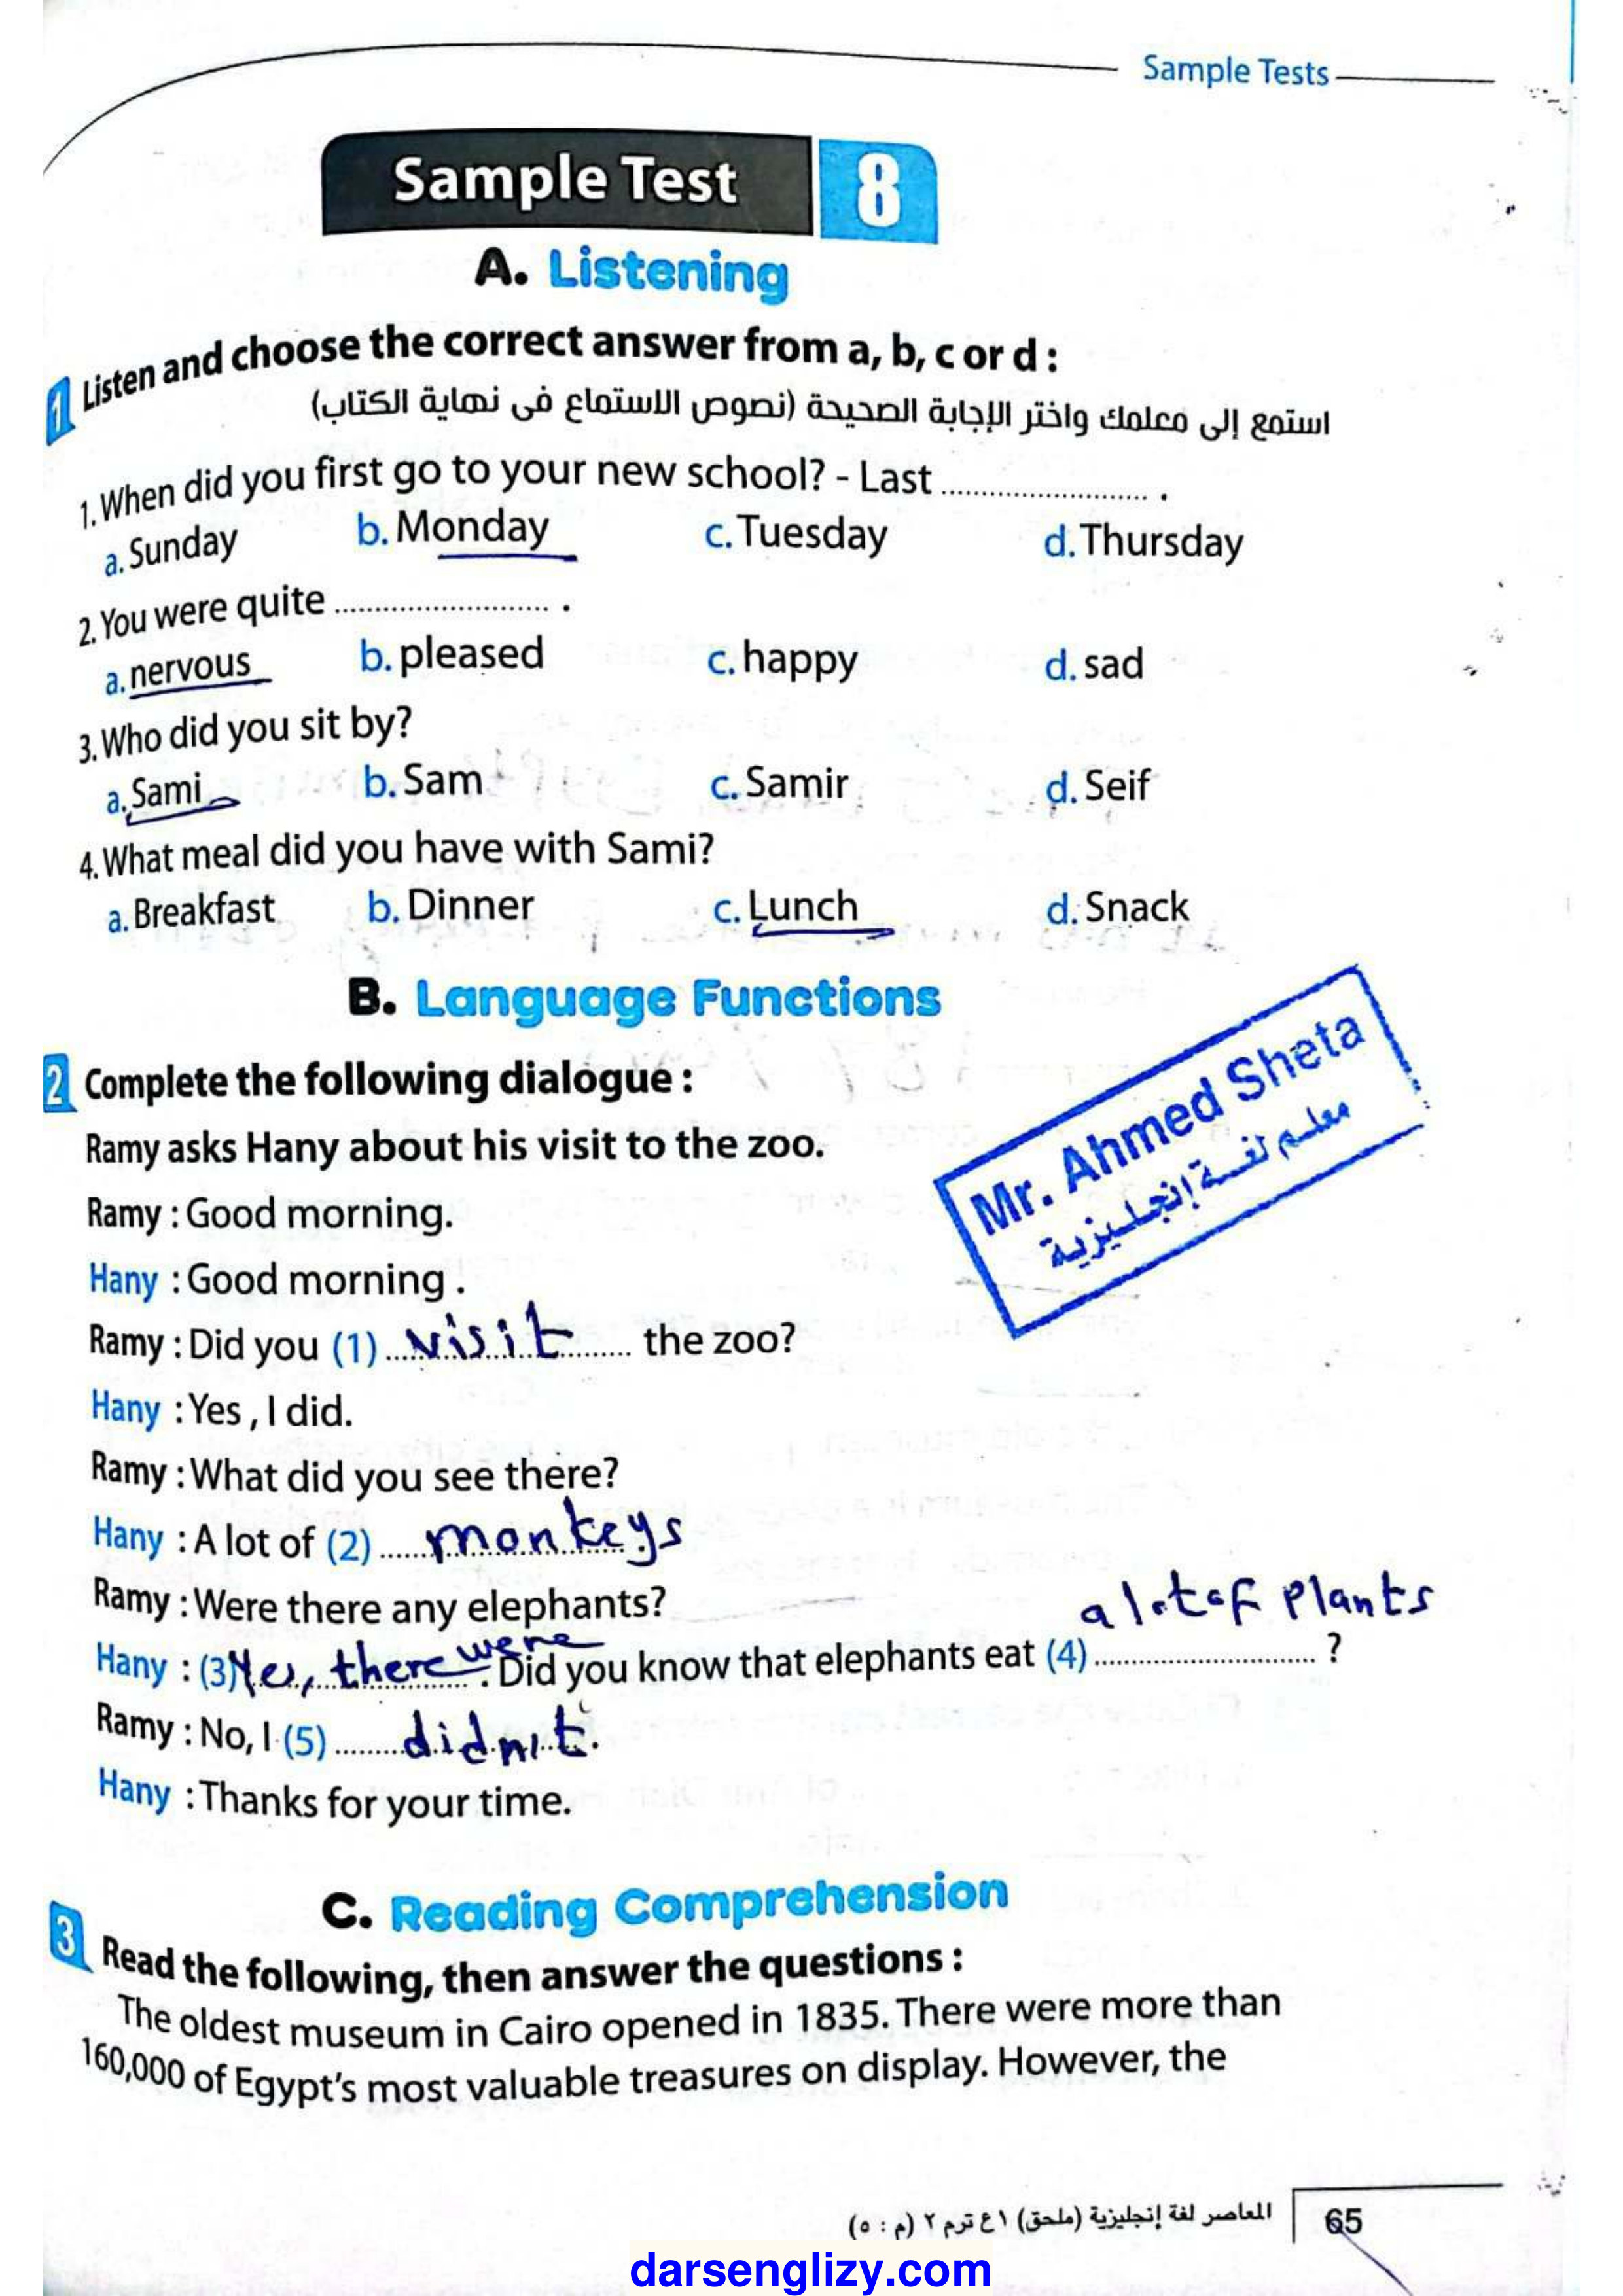 Sample Tests
Sample Test 8
A. Listening
1 Listen and choose the correct answer from a, b, c or d :
استمع إلى معلمك واختر الإجابة الصحيحة (نصوص الاستماع فى نهاية الكتاب)
1. When did you first go to your new school? - Last ........................ .
a. Sunday b. Monday c. Tuesday d. Thursday
2. You were quite ........................ .
a. nervous b. pleased c. happy d. sad
3. Who did you sit by?
a. Sami b. Sam c. Samir d. Seif
4. What meal did you have with Sami?
a. Breakfast b. Dinner c. Lunch d. Snack
B. Language Functions
Mr. Ahmed Sheta
معلم لغة إنجليزية
2 Complete the following dialogue :
Ramy asks Hany about his visit to the zoo.
Ramy : Good morning.
Hany : Good morning .
Ramy : Did you (1) visit the zoo?
Hany : Yes , I did.
Ramy : What did you see there?
Hany : A lot of (2) monkeys
Ramy : Were there any elephants?
a lot of plants
Hany : (3) Yes, there were . Did you know that elephants eat (4) ........................ ?
Ramy : No, I (5) didn't .
Hany : Thanks for your time.
C. Reading Comprehension
3 Read the following, then answer the questions :
The oldest museum in Cairo opened in 1835. There were more than
160,000 of Egypt's most valuable treasures on display. However, the
المعاصر لغة إنجليزية (ملحق) ١ ع ترم ٢ (م : ٥) 65
darsenglizy.com